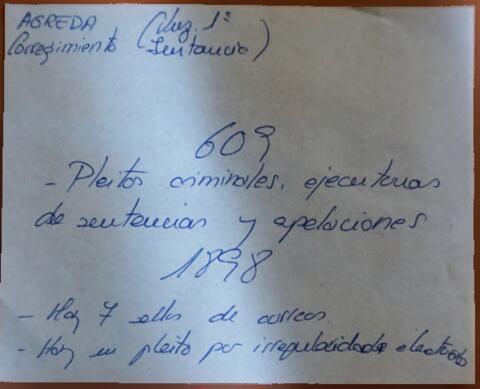 AGREDA (Juz. 1ª
Corregimiento Instancia)
609
- Pleitos criminales, ejecutorias
de sentencias y apelaciones
1898
- Hay 7 sellos de correos
- Hay un pleito por irregularidades electorales